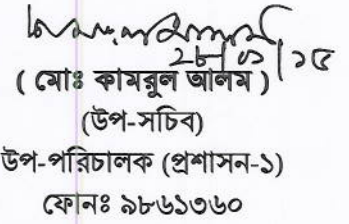 ২৮/০১/১৫
( মোঃ কামরুল আলম )
(উপ-সচিব)
উপ-পরিচালক (প্রশাসন-১)
ফোনঃ ৯৮৬১৩৬০